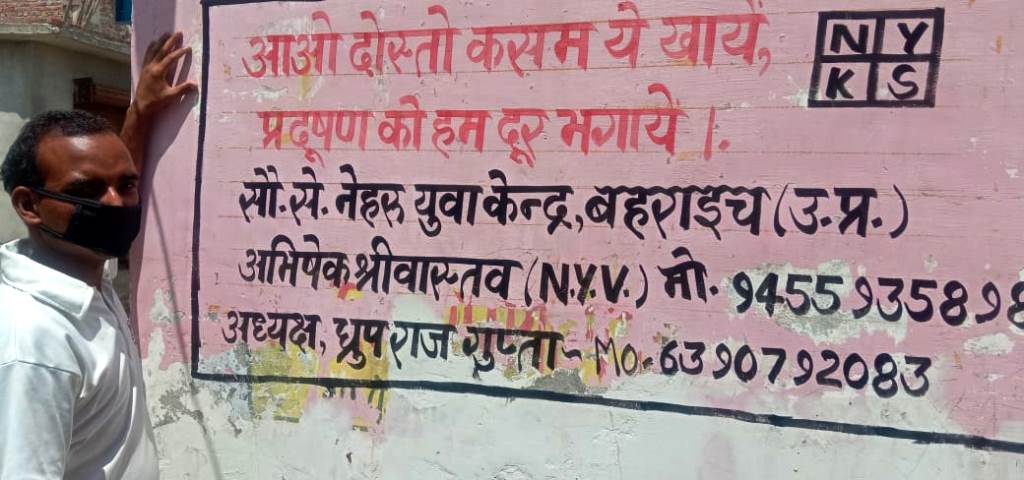 आओ दोस्तो कसम ये खायें,
प्रदूषण को हम दूर भगायें।
N Y
K S
सौ.से. नेहरू युवा केन्द्र, बहराइच (उ.प्र.)
अभिषेक श्रीवास्तव (N.Y.V.) मो. 9455935898
अध्यक्ष, ध्रुपराज गुप्ता - Mo. 6390792083